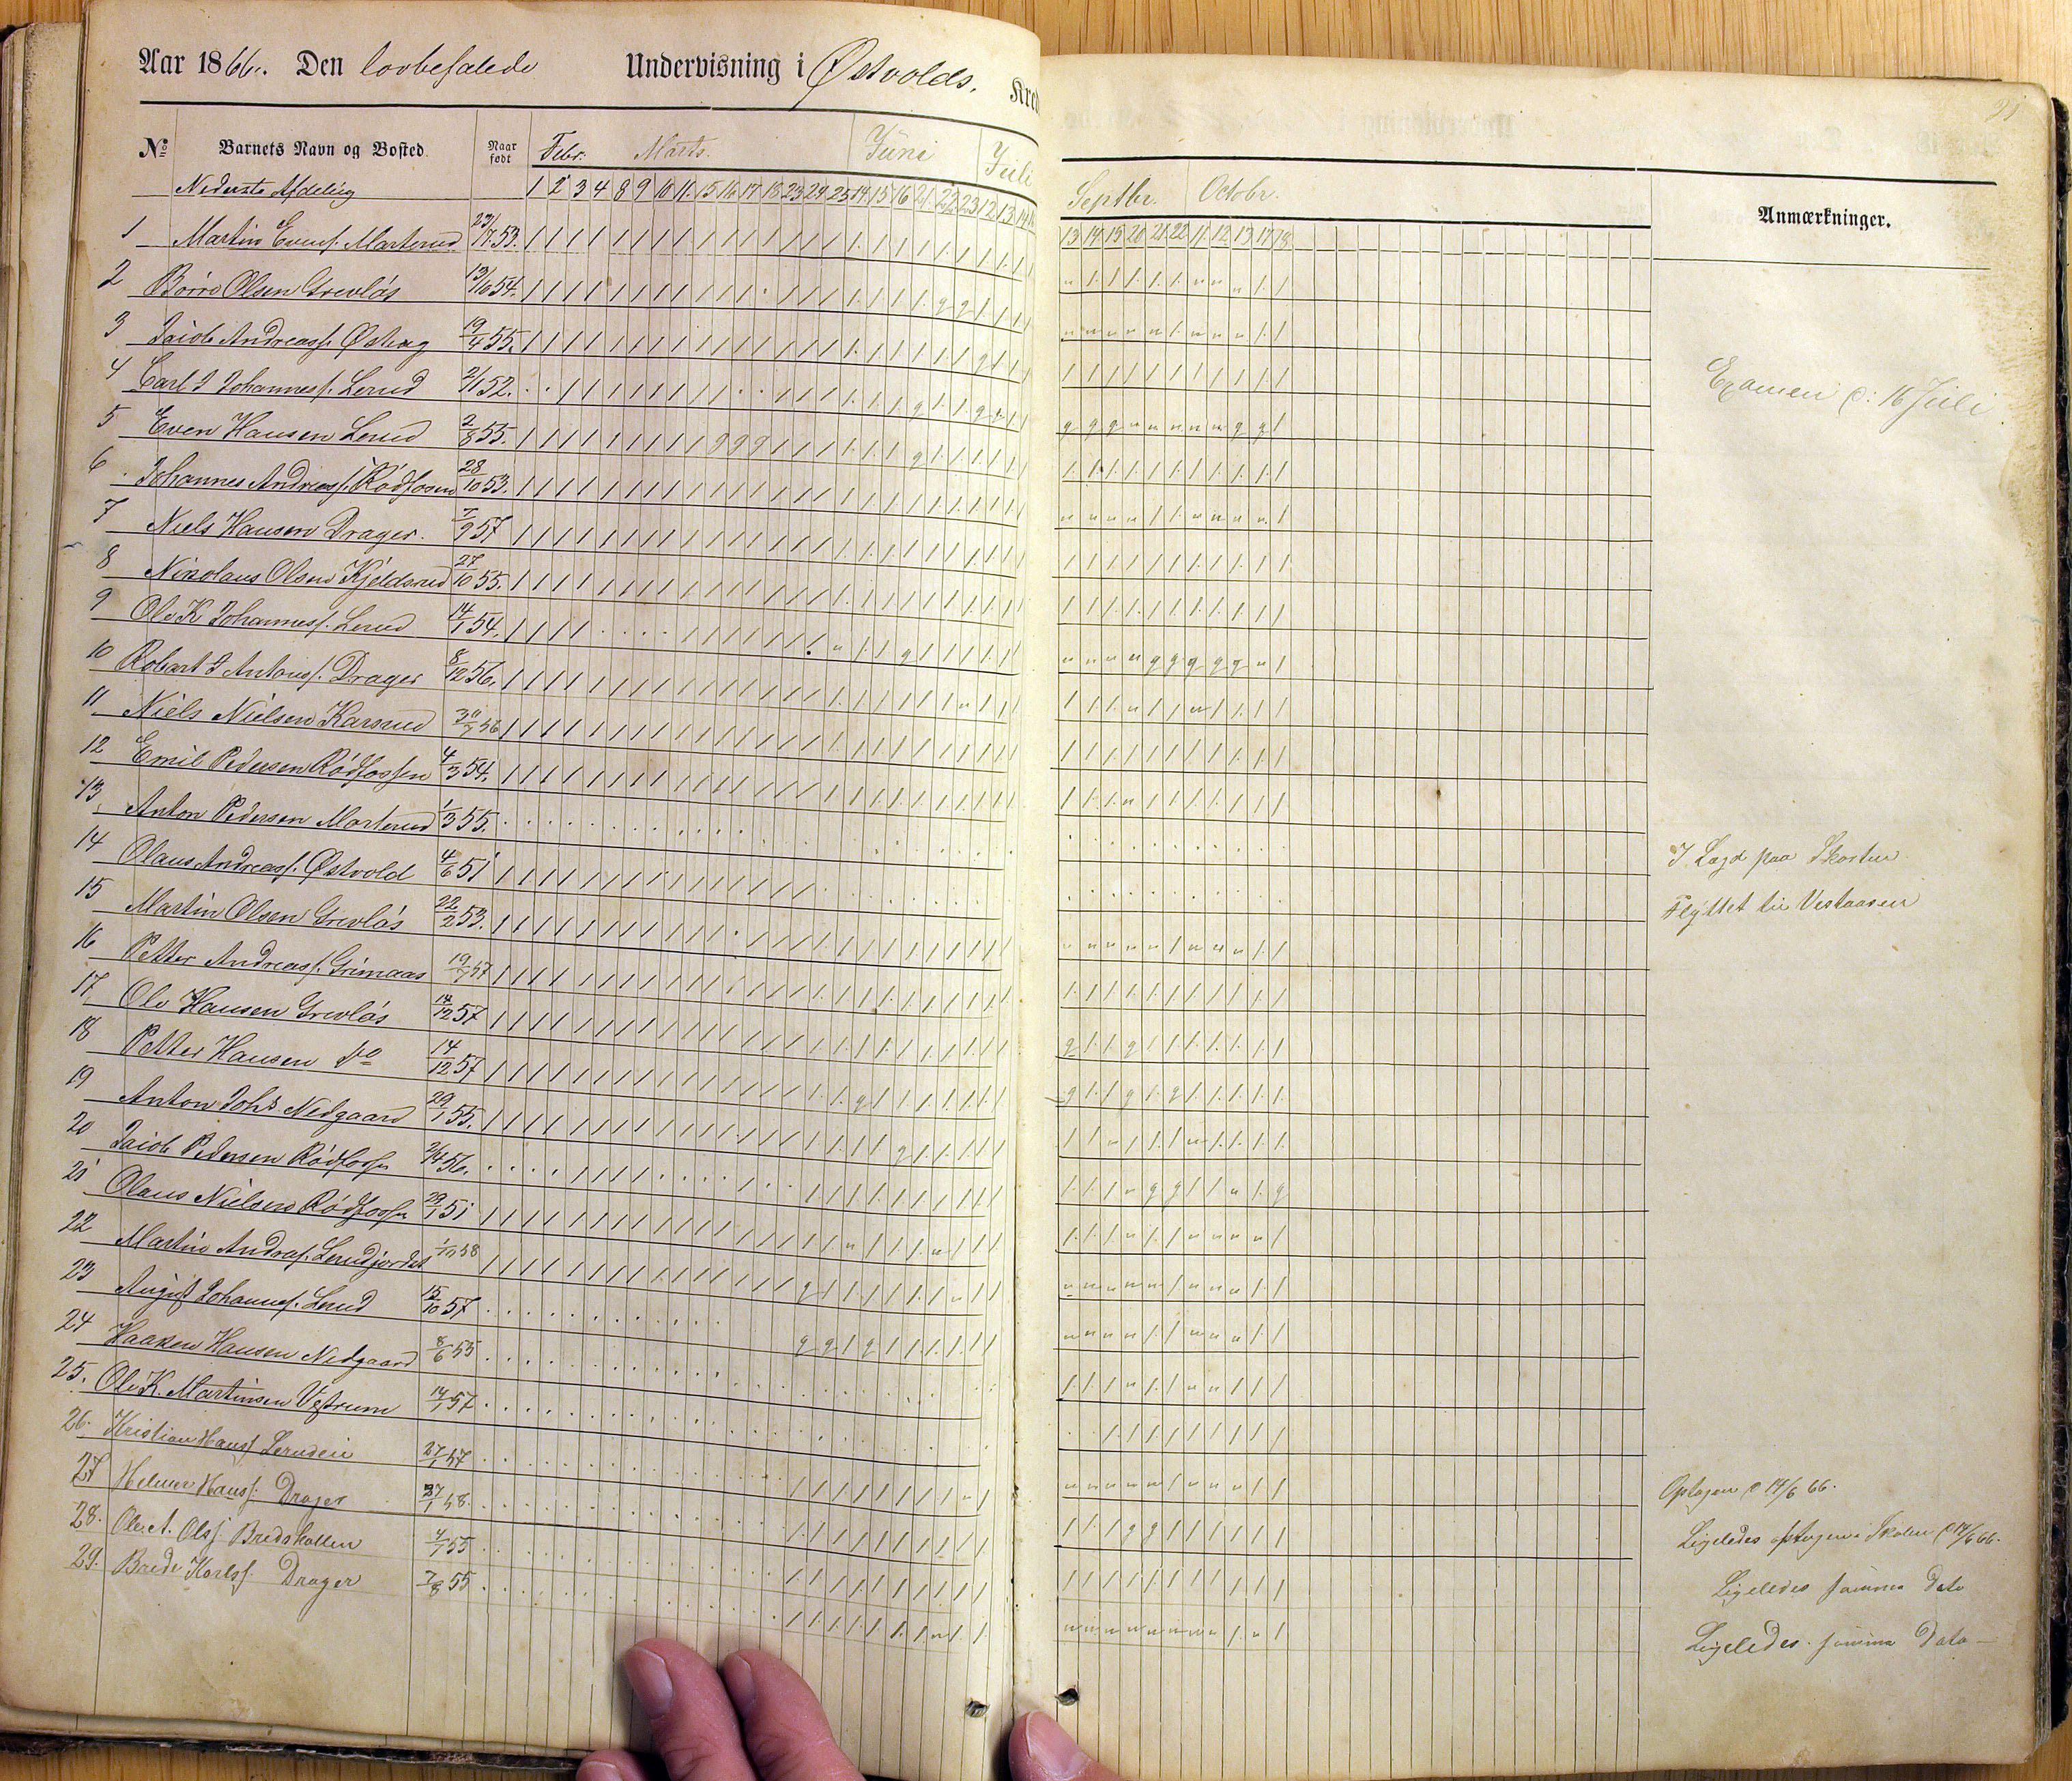 Aar 1866. Den lovbefalede Undervisning i Østvolds. Kred
№ Barnets Navn og Bosted. Naar født Febr. Marts. Juni Juli
Nederste Afdeling 1 2 3 4 8 9 10 11 15 16 17 18 23 24 25 14 15 16 21 22 23 12 13 14
1 Martin Evens. Marterud 53.
2 Børre Olsen Grevlös 13/10 54.
3 Jacob Andreass. Østhag 19/4 55.
4 Carl J Johanness. Lerud 2/1 52.
5 Even Hansen Lerud 2/8 55.
6 Johannes Andreass. Rödfosen 28/10 53.
7 Niels Hansen Drager. 7/9 57
8 Nikolaus Olsen Kjeldsrud 27/10 55.
9 Ole K Johanness. Lerud 14/1 54.
10 Robart J Antons. Drager 8/12 56.
11 Niels Nielsen Karsrud 56
12 Emil Pedersen Rödfossen 4/3 54.
13 Anton Pedersen Marterud 1/3 55.
14 Olaus Andreass. Østvold 4/6 51
15 Martin Olsen Grevlös 22/2 53.
16 Petter Andreass. Grimaas 57
17 Ole Hansen Grevlös 14/12 57
18 Petter Hansen do 14/12 57
19 Anton Johs Nedgaard 29/1 55.
20 Jacob Pedersen Rödfossen 2/4 56.
21 Olaus Nielsen Rödfossen 29/1 51
22 Martin Andreas. Lerudjordet 58
23 August Johannes. Lerud 15/10 57
24 Haaken Hansen Nedgaard 8/6 55
25. Ole K. Martinsen Vestrum 14/1 57
26. Kristian Hanss Lerudeie 27/1 57
27 Helmer Hanss: Drager 27/1 58.
28. Olss. Bredskallen 4/1 55
29. Brede Karlss. Drager 7/8 55
21
Septbr. Octobr. Anmærkninger.
13 14 15 20 21 22 11 12 13 17 18
Examen d: 16 Juli
I Lægd paa Skorten
Flyttet til Vestaasen
Optagen d 14/6 66.
Ligeledes optagen i Skolen d 14/6 66.
Ligeledes samme Dato
Ligeledes samme Dato —